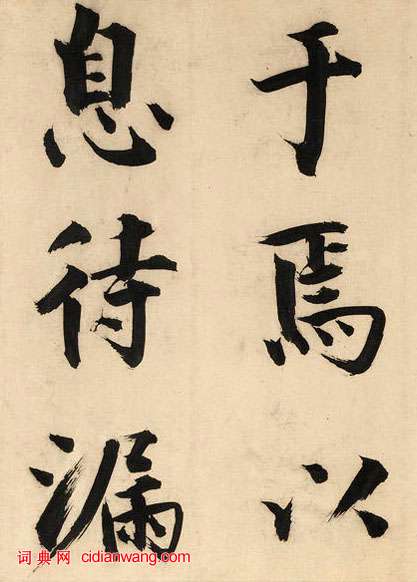 于焉以
息待漏
词典网 cidianwang.com